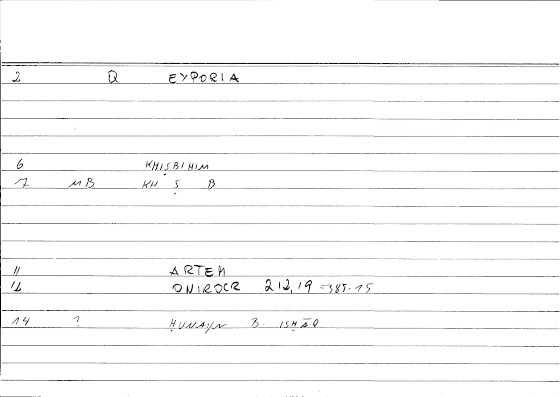 2 Q EYPORIA
6 KHIṢBIHIM
7 MB KH Ṣ B
11 ARTEM
12 ONIROCR 212,19 =385.15
14 ? ḤUNAYN B. ISḤĀQ